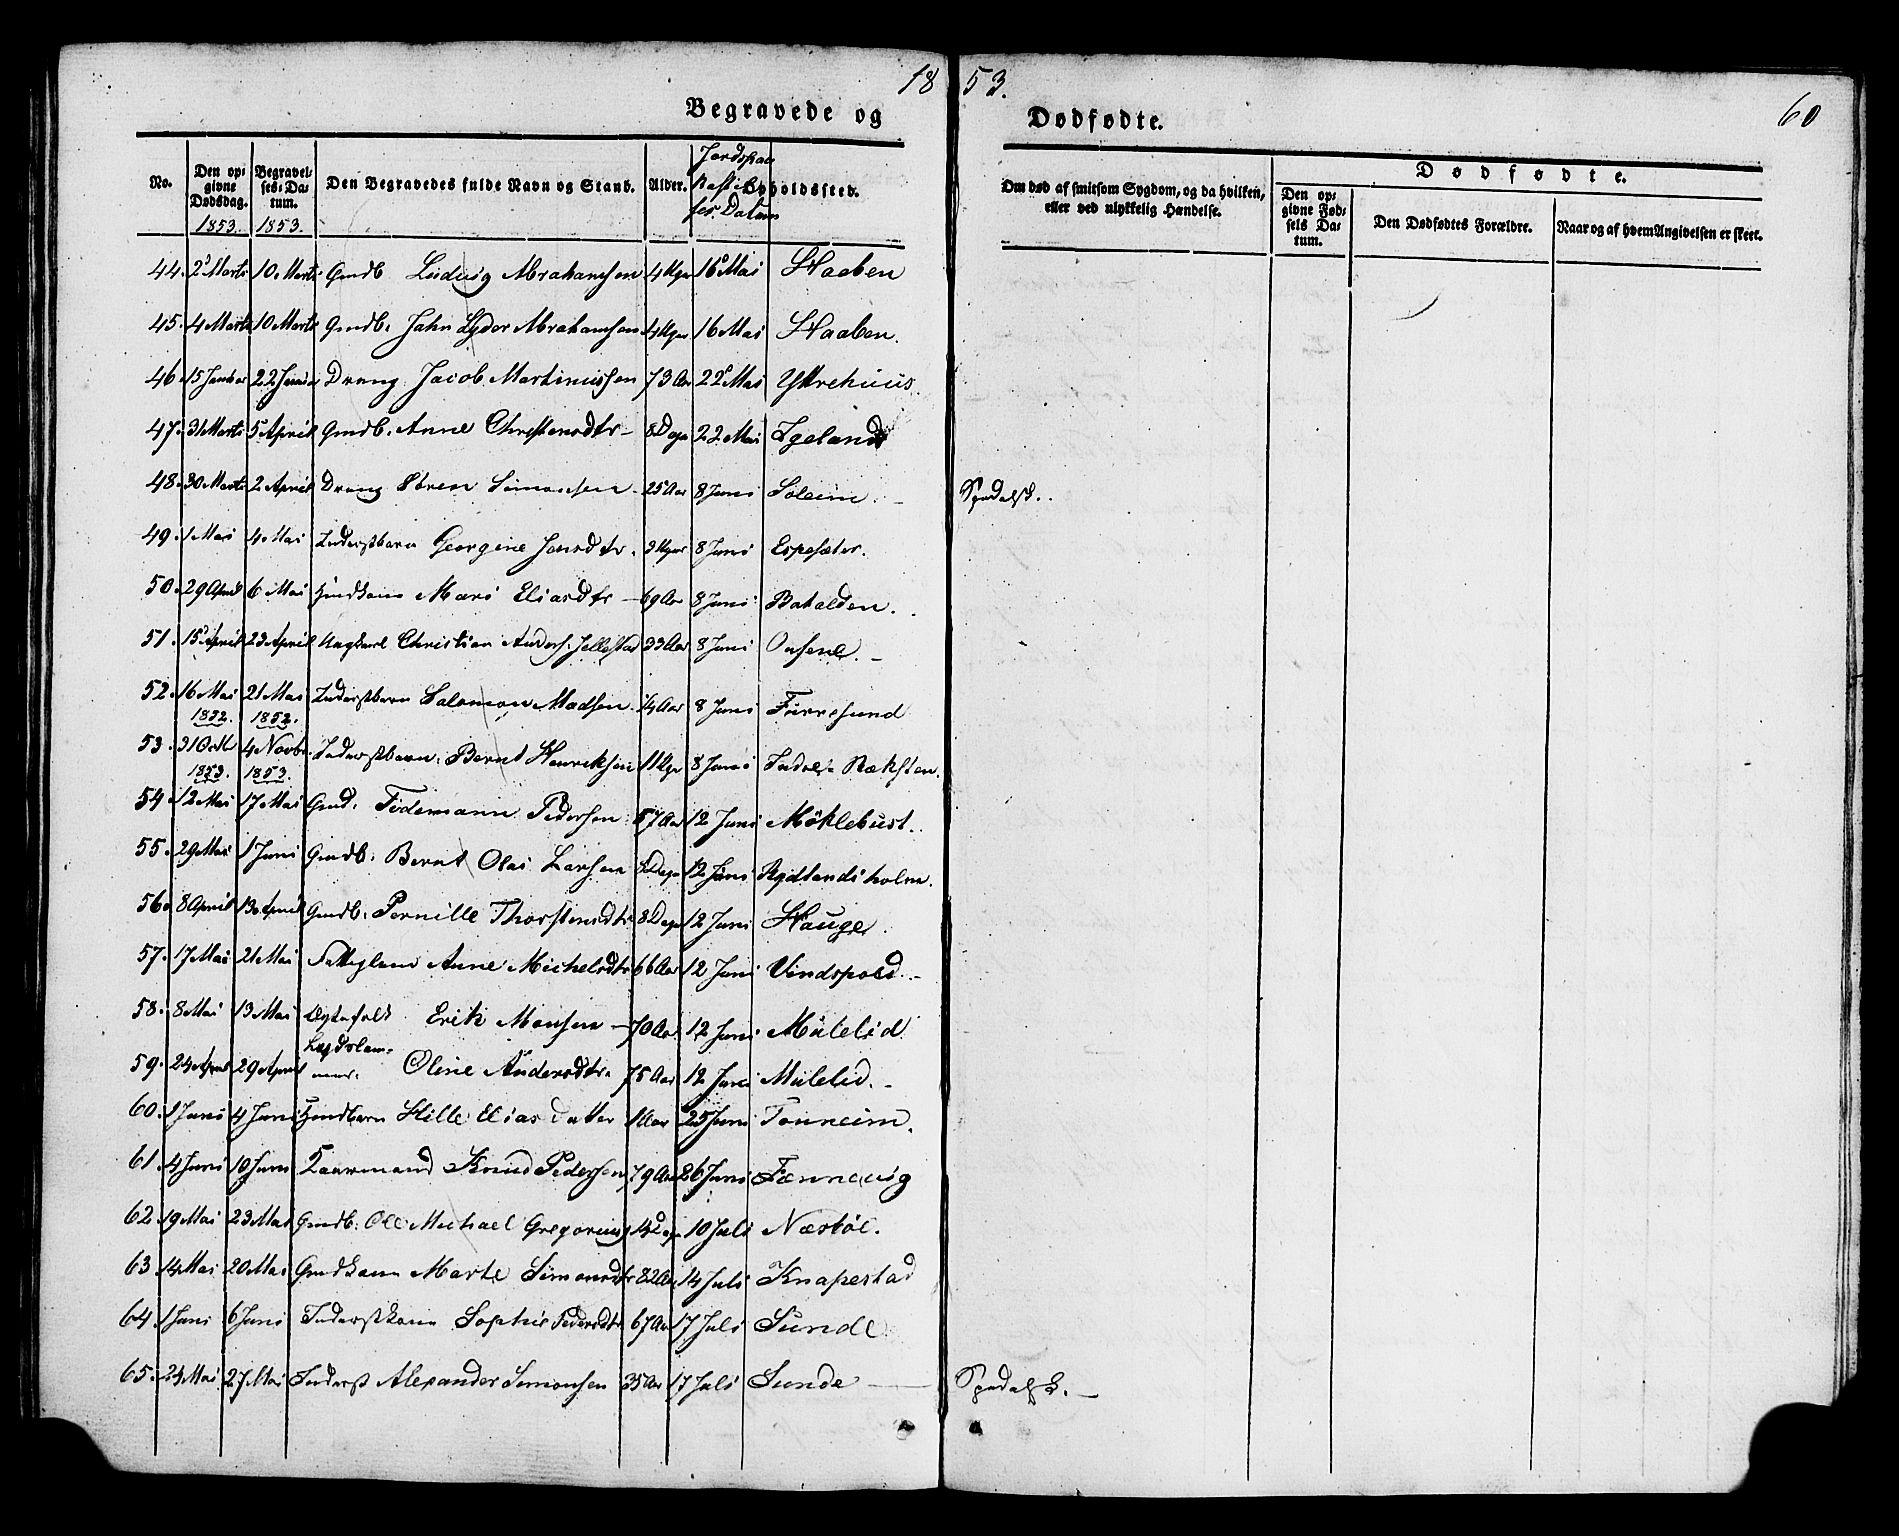 1853.
60
Begravede og Dødfødte.
No.
Den opgivne Dødsdag. 1853.
Begravelses-Datum. 1853.
Den Begravedes fulde Navn og Stand.
Alder.
Jordspaakastelses Datum
Opholdssted.
Om død af smitsom Sygdom, og da hvilken, eller ved ulykkelig Hændelse.
Dødfødte.
Den opgivne Fødsels Datum.
Den Dødfødtes Forældre.
Naar og af hvem Angivelsen er skeet.
44. 2 Marts 10. Marts Gmdb Ludvig Abrahamsen 4 Uger 16 Mai Haaben
45. 4 Marts 10 Marts Gmdb. Jahn Lyder Abrahamsen 4 Uger 16 Mai Haaben.
46. 15 Januar 22 Januar Dreng Jacob Martinussen 73 Aar 22 Mai Yttrehuus.
47. 31 Marts 5 April Gmdb. Anne Christensdtr 8 Dage 22 Mai Igeland
48. 30 Marts 2 April Dreng Sören Simonsen 25 Aar 8 Juni Soleim. Spedalsk.
49. 1 Mai 4. Mai Inderstbarn Georgine Jonsdtr. 3 Uger 8 Juni Espesæter.
50. 29 April 6 Mai Gmdkone Mari Eliasdtr 69 Aar 8 Juni Batalden.
51. 15 April 23 April Ungkarl Christian Anders. Jellestad 33 Aar 8 Juni
52. 16 Mai 21 Mai Inderstbarn Salomon Madsen 14 Aar 8 Juni Furresund
1852. 1852.
53. 31 Octb 4 Novbr Inderstbarn. Bernt Henriksen 11 Uger 8 Juni Indre Ræksten.
1853. 1853.
54. 12 Mai 17 Mai Gmd. Tidemann Pedersen 57 Aar 12 Juni Möklebust.
55. 29 Mai 1 Juni Gmdb. Bernt Olai Larsen 8 Dage 12 Juni Rydlandsholm.
56. 8 April 13 April Gmdb. Pernille Thorstensdtr 8 Dage 12 Juni Hauge.
57. 17 Mai 21 Mai Fattiglem Anne Michelsdtr 66 Aar 12 Juni Vindspold.
58. 8 Mai 13 Mai Erik Monsen 70 Aar 12 Juni Mulelid
59. 24 April 29 April Lægdslemmer. Oline Andersdtr. 75 Aar 12 Juni Mulelid.
60. 1 Juni 4 Juni Gmdbarn Hille Elias datter 1 Aar 25 Juni Tonneim.
61. 4 Juni 10 Juni Kaarmand Knud Pedersen 79 Aar 26 Juni Fænnevig
62. 19 Mai 23 Mai Gmdb. Ole Michael Gregoriuss 14 Dage 10 Juli Næstöl.
63 14 Mai 20 Mai Gmdkone Marte Simonsdtr 82 Aar 14 Juli Knapestad
64. 1 Juni 6 Juni Inderstkone Sophie Pedersdtr 67 Aar 17 Juli Sunde
65. 24 Mai 27 Mai Inderst Alexander Simonsen 35 Aar 17 Juli Sunde Spedalsk.